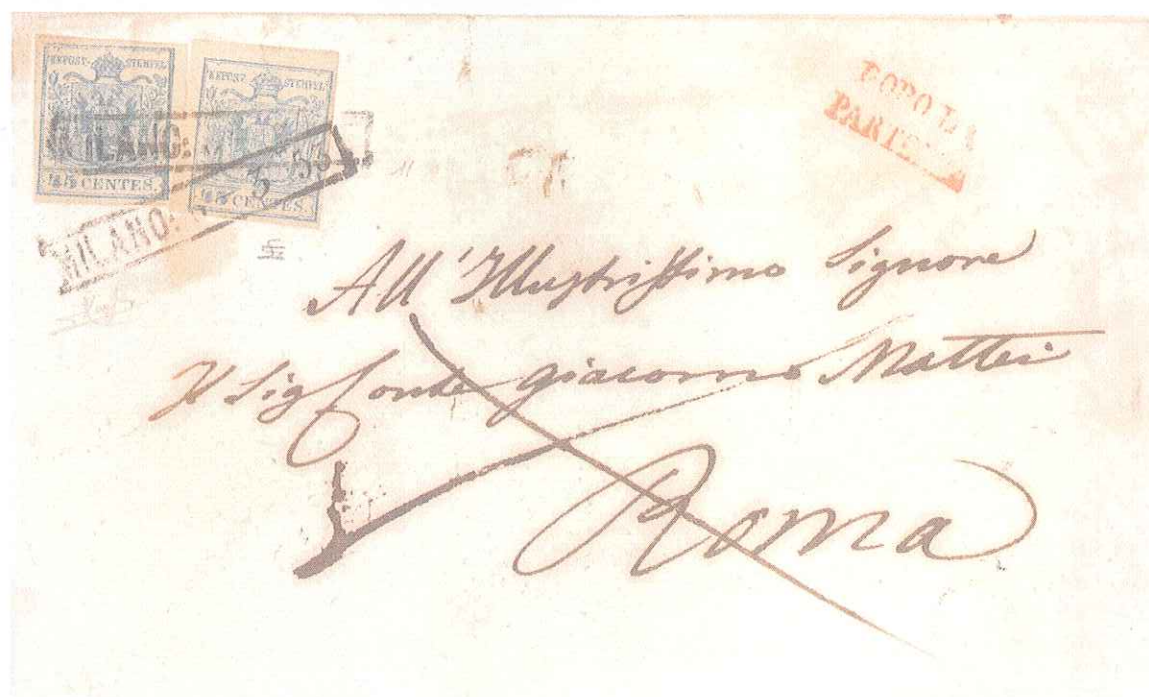 KKPOST- STEMPEL
KKPOST- STEMPEL
45 CENTES.
45 CENTES.
MILANO:
MILANO:
DOPO LA
PARTENZA
All'Illustrissimo Signore
Il Sig Conte Giacomo Mattei
Roma